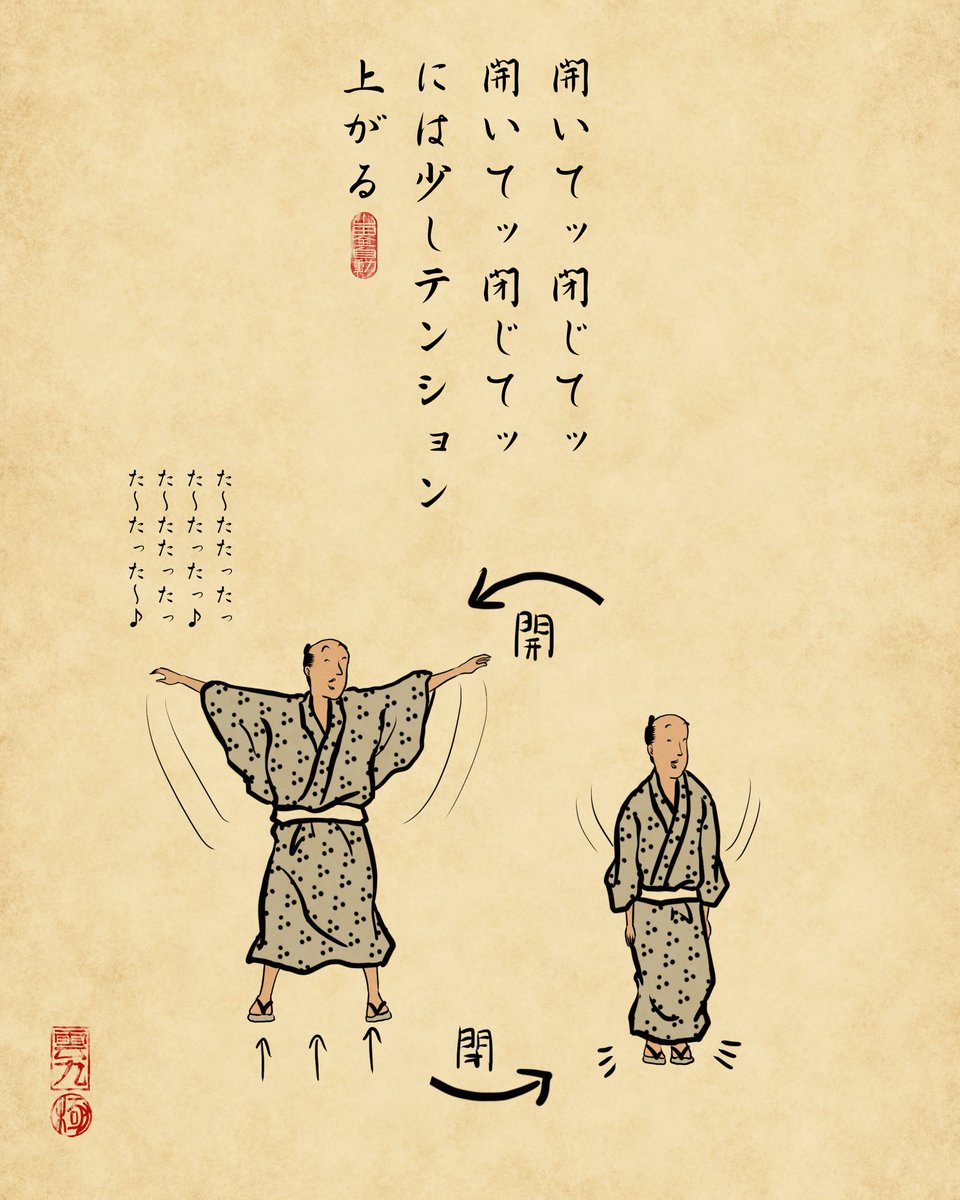 開いてッ閉じてッ
開いてッ閉じてッ
には少しテンション
上がる
た〜たたったっ
た〜たったっ♪
た〜たたったっ
た〜たったた〜♪
開
閉